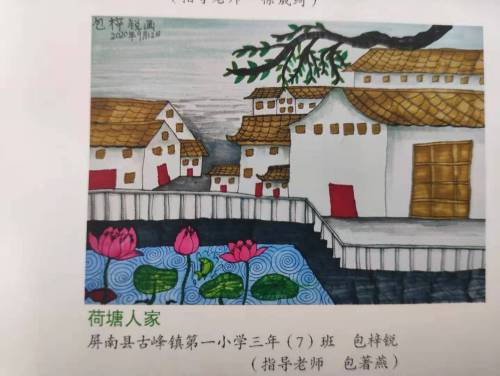 (指导老师
包梓锐画
2020年9月12日
荷塘人家
屏南县古峰镇第一小学三年(7)班 包梓锐
(指导老师 包著燕)